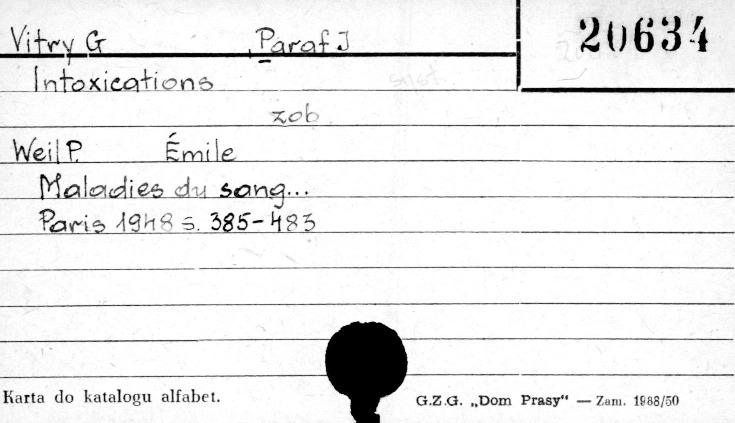 Vitry G , Paraf J
20634
Intoxications
zob
Weil P. Émile
Maladies du sang...
Paris 1948 s. 385-483
Karta do katalogu alfabet.
G.Z.G. „Dom Prasy“ — Zam. 1988/50